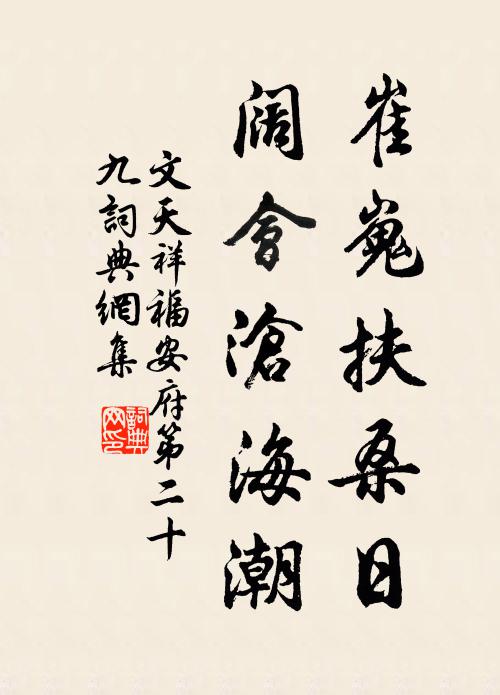 崔嵬扶桑日
闊會滄海潮
文天祥福安府第二十
九詞典網集
詞典
网印